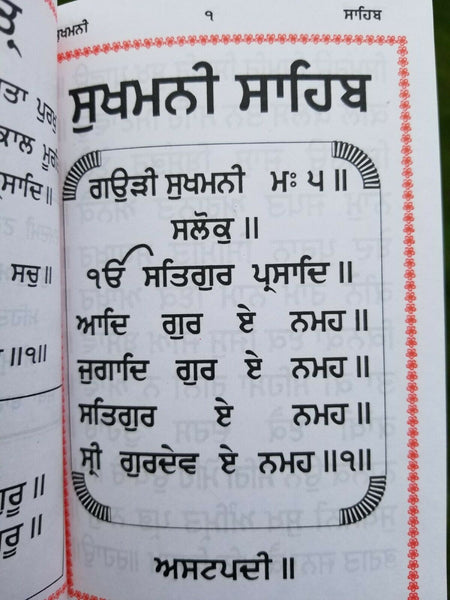 ਸੁਖਮਨੀ ੧ ਸਾਹਿਬ
ਸੁਖਮਨੀ ਸਾਹਿਬ
ਗਉੜੀ ਸੁਖਮਨੀ ਮਃ ੫ ॥
ਸਲੋਕੁ ॥
ੴ ਸਤਿਗੁਰ ਪ੍ਰਸਾਦਿ ॥
ਆਦਿ ਗੁਰ ਏ ਨਮਹ ॥
ਜੁਗਾਦਿ ਗੁਰ ਏ ਨਮਹ ॥
ਸਤਿਗੁਰ ਏ ਨਮਹ ॥
ਸ੍ਰੀ ਗੁਰਦੇਵ ਏ ਨਮਹ ॥੧॥
ਅਸਟਪਦੀ ॥
ਸਚੁ ॥
॥੧॥